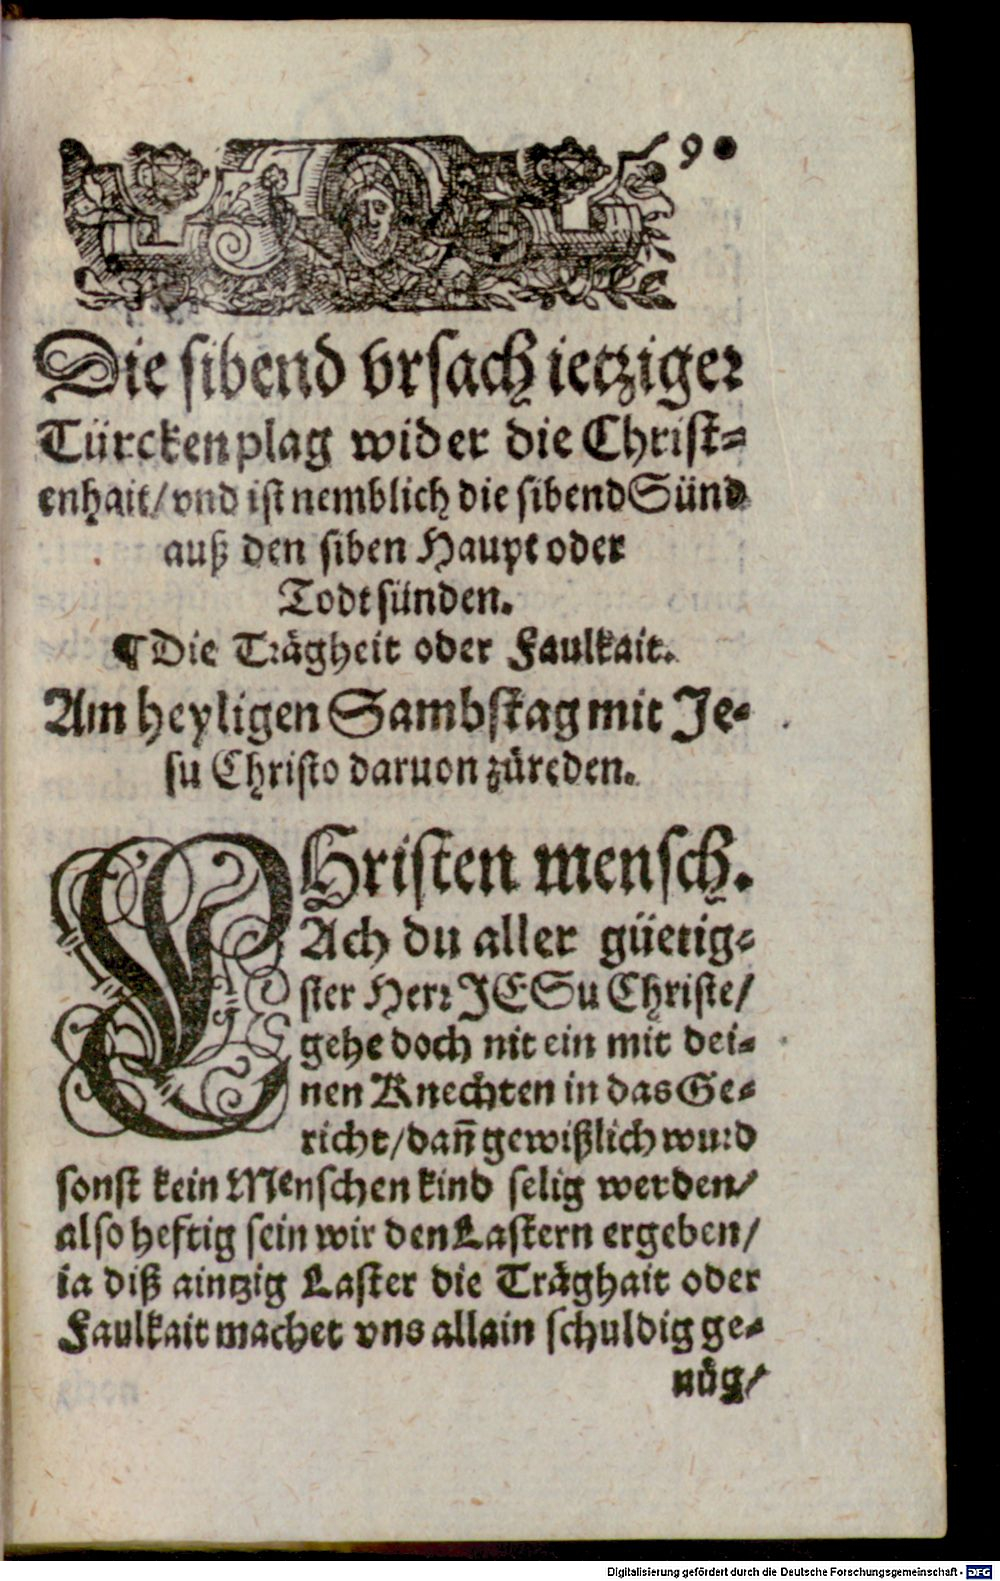 90
Die sibend vrsach ietziger
Türckenplag wider die Christ-
enhait/ vnd ist nemblich die sibend Sünd
auß den siben Haupt oder
Todtsünden.
¶ Die Trägheit oder Faulkait.
Am heyligen Sambstag mit Je-
su Christo daruon zůreden.
CHristen mensch.
Ach du aller güetig-
ster Herr JESu Christe/
gehe doch nit ein mit dei-
nen Knechten in das Ge-
richt/ dañ gewißlich wurd
sonst kein Menschen kind selig werden/
also heftig sein wir den Lastern ergeben/
ia diß aintzig Laster die Träghait oder
Faulkait machet vns allain schuldig ge-
nůg/
Digitalisierung gefördert durch die Deutsche Forschungsgemeinschaft - DFG